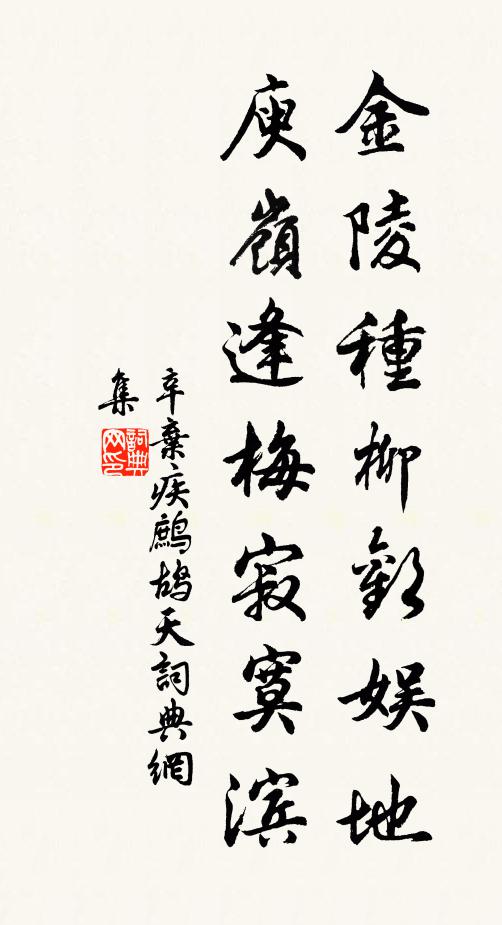 金陵種柳歡娛地
庾嶺逢梅寂寞濱
辛棄疾鷓鴣天詞典網
集
詞典
网印